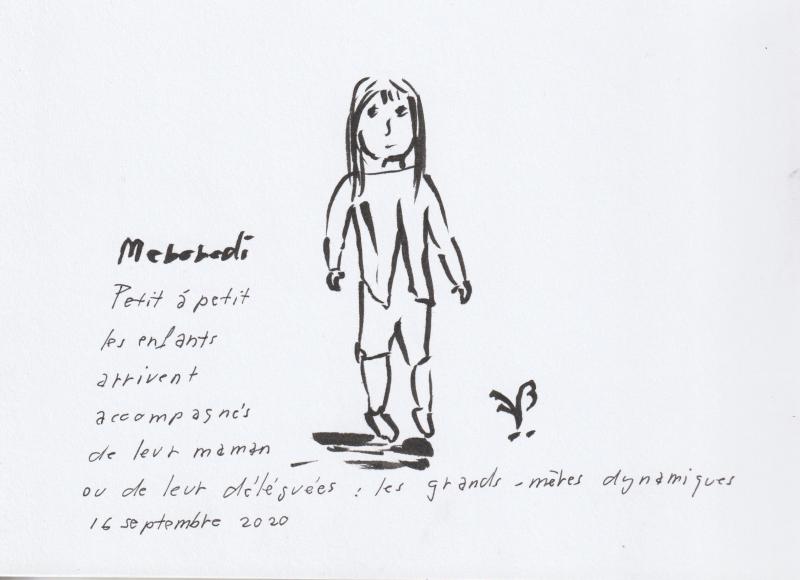 Mercredi
Petit à petit
les enfants
arrivent
accompagnés
de leur maman
ou de leur déléguées : les grands-mères dynamiques
16 septembre 2020